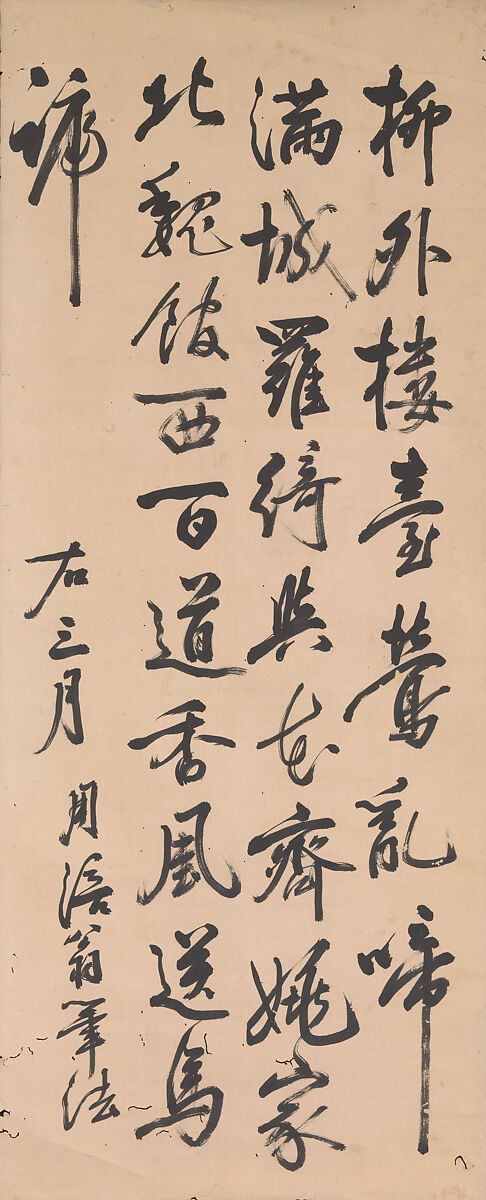 柳外樓臺鶯亂啼
滿城羅綺與花齊姚家
北魏館西百道香風送馬
蹄
右三月 用涪翁筆法